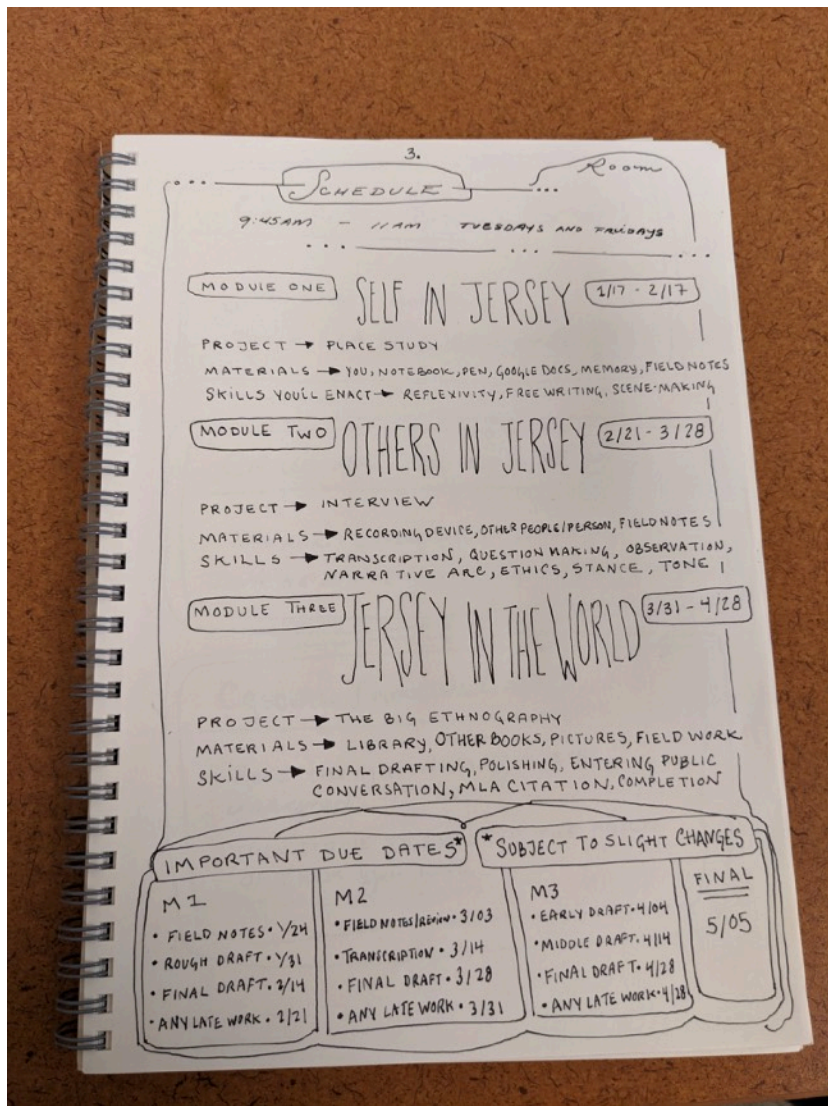 3.
SCHEDULE
Room
9:45AM - 11AM TUESDAYS AND FRIDAYS
MODULE ONE SELF IN JERSEY 1/17 - 2/17
PROJECT → PLACE STUDY
MATERIALS → YOU, NOTEBOOK, PEN, GOOGLE DOCS, MEMORY, FIELD NOTES
SKILLS YOU'LL ENACT → REFLEXIVITY, FREE WRITING, SCENE-MAKING
MODULE TWO OTHERS IN JERSEY 2/21 - 3/28
PROJECT → INTERVIEW
MATERIALS → RECORDING DEVICE, OTHER PEOPLE/PERSON, FIELD NOTES
SKILLS → TRANSCRIPTION, QUESTION MAKING, OBSERVATION,
NARRATIVE ARC, ETHICS, STANCE, TONE
MODULE THREE JERSEY IN THE WORLD 3/31 - 4/28
PROJECT → THE BIG ETHNOGRAPHY
MATERIALS → LIBRARY, OTHER BOOKS, PICTURES, FIELD WORK
SKILLS → FINAL DRAFTING, POLISHING, ENTERING PUBLIC
CONVERSATION, MLA CITATION, COMPLETION
IMPORTANT DUE DATES* *SUBJECT TO SLIGHT CHANGES
M1
• FIELD NOTES • 1/24
• ROUGH DRAFT • 1/31
• FINAL DRAFT • 2/14
• ANY LATE WORK • 2/21
M2
• FIELD NOTES/REVIEW • 3/03
• TRANSCRIPTION • 3/14
• FINAL DRAFT • 3/28
• ANY LATE WORK • 3/31
M3
• EARLY DRAFT • 4/04
• MIDDLE DRAFT • 4/14
• FINAL DRAFT • 4/28
• ANY LATE WORK • 4/28
FINAL
5/05